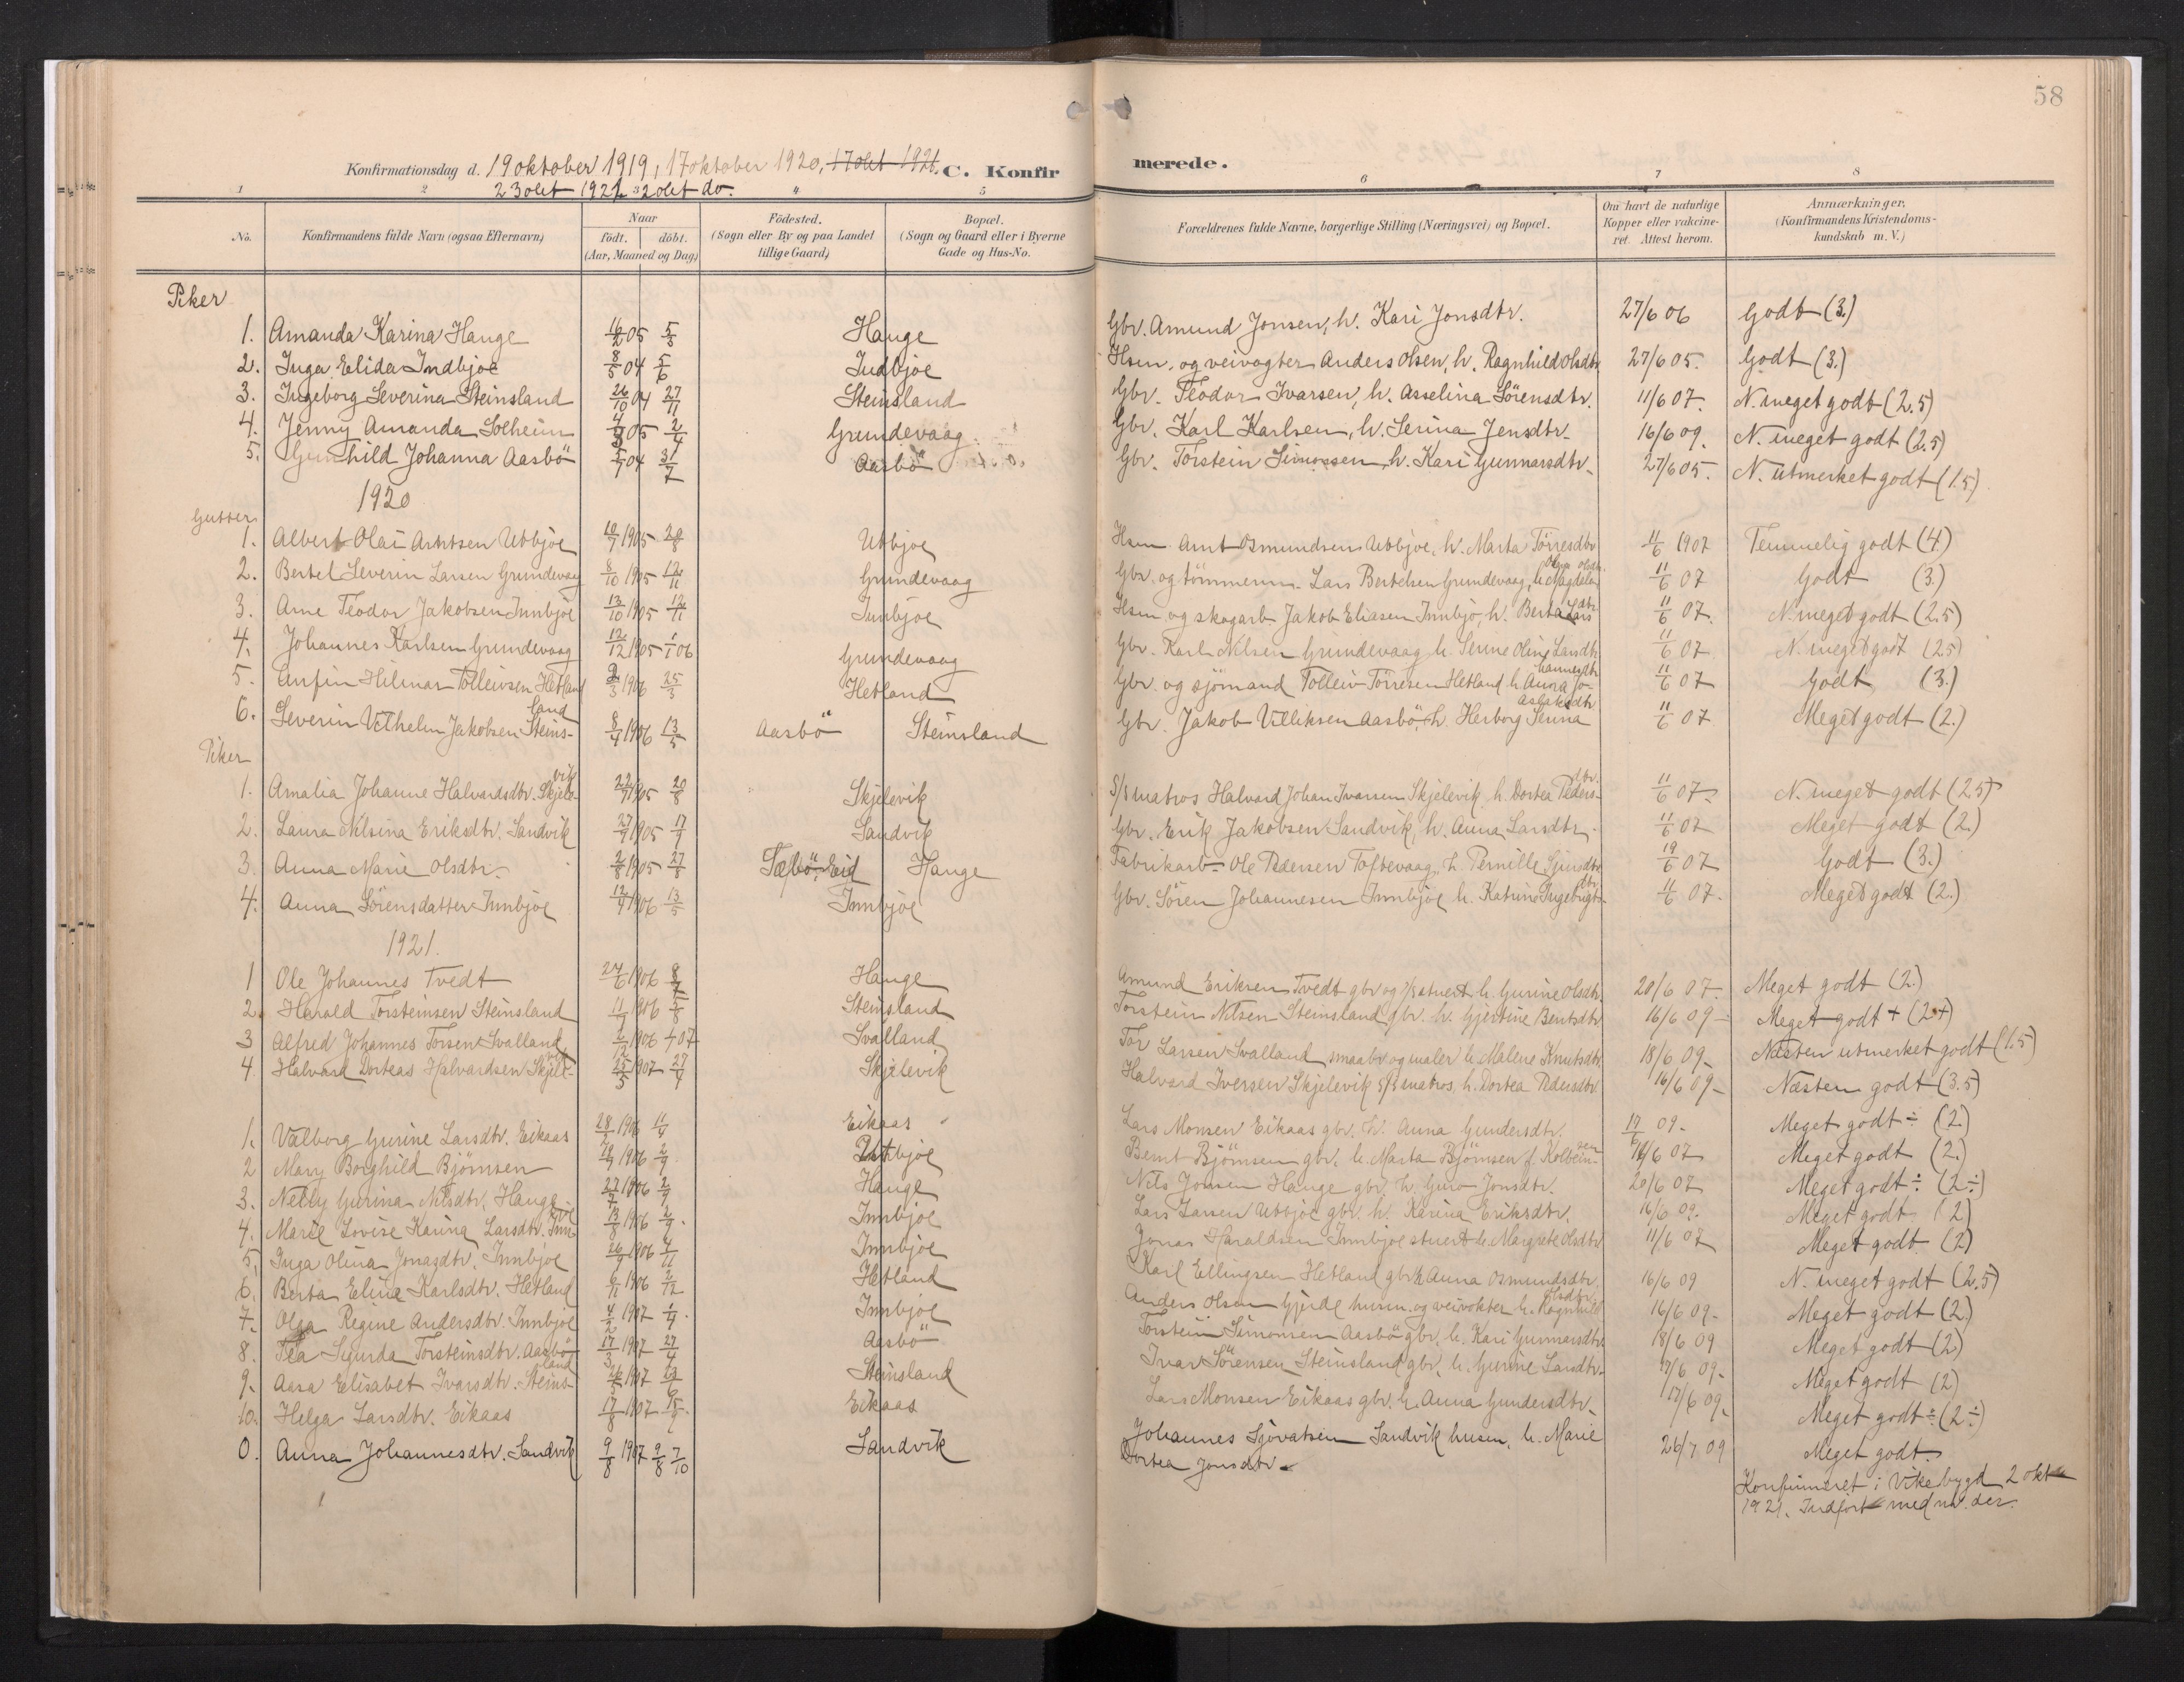 58
Konfirmationsdag d. 19 oktober 1919, 17 oktober 1920, 17 okt 1921. C. Konfirmerede.
23 okt 1921 2 okt do.
1 2 3 4 5 6 7 8
No. Konfirmandens fulde Navn (ogsaa Efternavn) Naar født. døbt. (Aar, Maaned og Dag) Födested. (Sogn eller By og paa Landet tillige Gaard) Bopæl. (Sogn og Gaard eller i Byerne Gade og Hus-No. Forældrenes fulde Navne, borgerlige Stilling (Næringsvei) og Bopæl. Om havt de naturlige Kopper eller vakcineret. Attest herom. Anmærkninger. (Konfirmandens Kristendomskundskab m. V.)
Piker
1. Amanda Karina Hauge 05 5/3 Hauge Gbr. Amund Jonsen, h. Kari Jonsdtr. 27/6 06 Godt (3.)
2. Inga Elida Indbjoe 8/5 04 5/6 Indbjoe Hsm. og veivogter Anders Olsen, h. Ragnhild Olsdtr. 27/6 05. Godt (3.)
3. Ingeborg Severina Steinsland 26/10 04 27/11 Steinsland Gbr. Teodor Ivarsen, h. Asselina Sörensdtr. 11/6 07. N. meget godt (2.5)
4. Jenny Amanda Solheim 05 2/4 Grundevaag Gbr. Karl Karlsen, h. Serina Jensdtr. 16/6 09. N. meget godt (2.5)
5. Gunhild Johanna Aasbö 04 31/7 Aasbö Gbr. Torstein Simonsen, h. Kari Gunnarsdtr. 27/6 05. N. utmerket godt (1.5)
1920
Gutter
1. Albert Olai Arntsen Utbjoe 10/7 1905 20/8 Utbjoe Hsm Arnt Osmundsen Utbjoe, h. Marta Törresdtr 11/6 1907 Temmelig godt (4.)
2. Bertel Severin Larsen Grundevaag 8/10 1905 12/11 Grundevaag Gbr. og tömmerm. Lars Bertelsen Grundevaag, h. Magdela Olsdtr. 11/6 07 Godt (3.)
3. Arne Teodor Jakobsen Innbjoe 13/10 1905 12/11 Innbjoe Hsm og skogarb. Jakob Eliasen Innbjo, h. Berta Larsdtr. 11/6 07. N. meget godt (2.5)
4. Johannes Karlsen Grundevaag 12/12 1905 1/1 06 Grundevaag Gbr. Karl Nilsen Grundevaag h. Serine Oline Larsdtr 11/6 07 N. meget godt (25)
5. Anfin Hilmar Tolleivsen Hetland 2/3 1906 25/3 Hetland Gbr. og sjömand Tolleiv Törresen Hetland h. Anna Johannesdtr 11/6 07 Godt (3.)
6. Severin Vilhelm Jakobsen Steinsland 8/4 1906 13/5 Aasbö Steinsland Gbr. Jakob Villiksen Aasbö, h. Herborg Serina Aslaksdtr 11/6 07 Meget godt (2.)
Piker
1. Amalia Johanne Halvardsdtr. Skjelevik 1905 20/8 Skjelevik S/s matros Halvard Johan Ivarsen Skjelevik, h. Dortea Pedersdtr. 11/6 07. N. meget godt (25)
2. Laura Nilsina Eriksdtr. Sandvik 1905 17/9 Sandvik Gbr. Erik Jakobsen Sandvik, h. Anna Larsdtr. 11/6 07 Meget godt (2.)
3. Anna Marie Olsdtr. 2/8 1905 27/8 Sæbö, Eid Hauge Fabrikarb. Ole Pedersen Toftevaag, h. Pernille 19/6 07 Godt (3.)
4. Anna Sörensdatter Innbjoe 12/4 1906 13/5 Innbjoe Gbr. Sören Johannesen Innbjoe h. Katrine Ingebrigtsdtr. 11/6 07. Meget godt (2.)
1921.
1 Ole Johannes Tvedt 1906 8/7 Hauge Amund Eriksen Tvedt gbr og s/s stuert h. Gurine Olsdtr. 20/6 07. Meget godt (2.)
2 Harald Torsteinsen Steinsland 11/7 1906 5/8 Steinsland Torstein Nilsen Steinsland gbr. h. Gjertine Bentsdtr 16/6 09 Meget godt + (2+)
3 Alfred Johannes Torsen Svalland 2/12 1906 07 Svalland Tor Larsen Svalland smaabr. og maler h. Malene Knutsdtr. 18/6 09. Næsten utmerket godt (1.5)
4. Halvard Dorteas Halvardsen Skjelevik 1907 Skjelevik Halvard Iversen Skjelevik s/s matros, h. Dortea Pedersdtr. 16/6 09 Næsten godt (3.5)
1. Valborg Gurine Larsdtr. Eikaas 28/2 1906 11/4 Eikaas Lars Monsen Eikaas gbr. h. Anna Gundersdtr. 17/6 09. Meget godt ÷ (2.)
2 Mary Borghild Björnsen 1906 2/9 Utbjoe Bernt Björnsen gbr. h. Marta Björnsen f. 07 Meget godt (2.)
3. Nelly Gurina Nilsdtr. Hauge 27/7 1906 2/9 Hauge Nils Jonsen Hauge gbr. h. Guro Jonsdtr. 20/6 07 Meget godt ÷ (2÷)
4. Marie Lovise Karina Larsdtr. 13/8 1906 2/9 Innbjoe Lars Larsen Utbjoe gbr. h. Karina Eriksdtr. 16/6 09. Meget godt (2)
5. Inga Olina Jonasdtr. Innbjoe 26/9 1906 4/11 Innbjoe Jonas Haraldsen Innbjoe stuert h. Margrete Olsdtr 11/6 07 Meget godt (2)
6. Berta Eline Karlsdtr. Hetland 1906 2/12 Hetland Karl Ellingsen Hetland gbr h. Anna Osmundsdtr. 16/6 09 N. meget godt (2.5)
7. Olga Regine Andersdtr. Innbjoe 4/2 1907 1/4 Innbjoe Anders Olsen Gjerde husm. og veivokter h. Ragnhild Olsdtr. 16/6 09. Meget godt (2.)
8. Tea Sigurda Torsteinsdtr. Aasbö 17/3 1907 27/4 Aasbö Torstein Simonsen Aasbö gbr. h. Kari Gunnarsdtr. 18/6 09 Meget godt (2)
9. Aasa Elisabet Ivarsdtr. Steinsland 26/5 1907 23/6 Steinsland Ivar Sörensen Steinsland gbr. h. Gurine Larsdtr. 17/6 09. Meget godt (2)
10. Helga Larsdtr. Eikaas 17/8 1907 15/9 Eikaas Lars Monsen Eikaas gbr. h. Anna Gundersdtr. 17/6 09. Meget godt ÷ (2÷)
0. Anna Johannesdtr. Sandvik 9/8 1907 9/8 7/10 Sandvik Johannes Sjovatsen Sandvik husm. h. Marie Dortea Jonsdtr. 26/7 09 Meget godt.
Konfirmeret i Vikebygd 2 okt
1921. Indfört med nr. der.